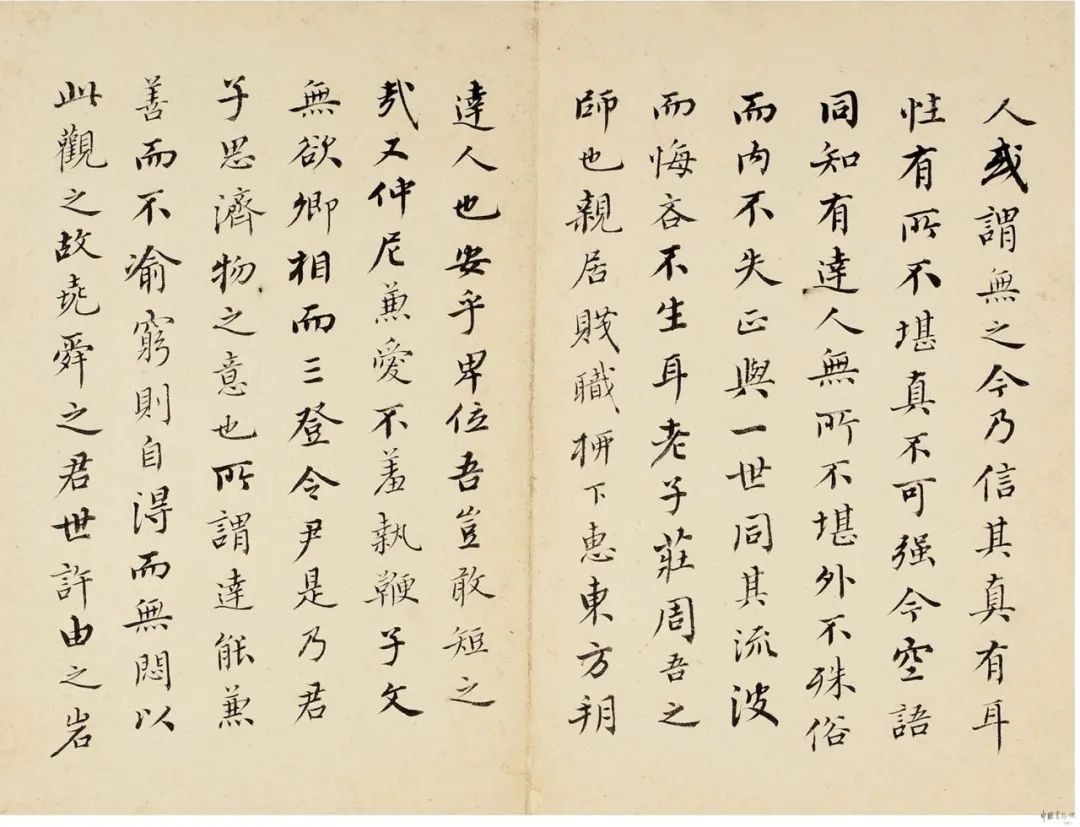 人或謂無之今乃信其真有耳
性有所不堪真不可强今空語
同知有達人無所不堪外不殊俗
而内不失正與一世同其流波
而悔吝不生耳老子莊周吾之
師也親居賤職栁下惠東方朔
達人也安乎卑位吾豈敢短之
㢤又仲尼兼愛不羞執鞭子文
無欲卿相而三登令尹是乃君
子思濟物之意也所謂達能兼
善而不渝窮則自得而無悶以
此觀之故堯舜之君世許由之岩